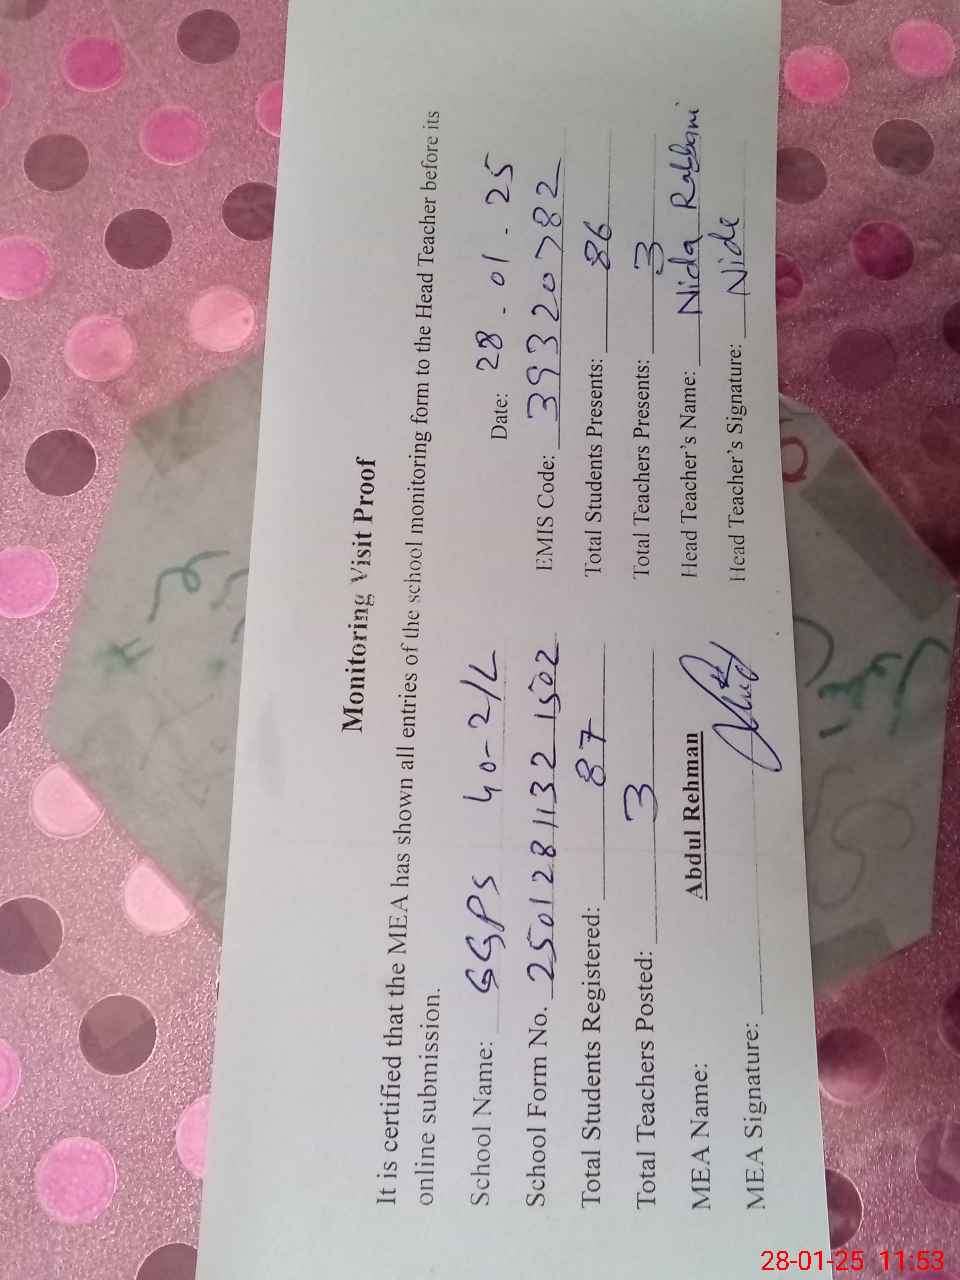 Monitoring Visit Proof
It is certified that the MEA has shown all entries of the school monitoring form to the Head Teacher before its
online submission.
School Name: GGPS 40-2/L Date: 28-01-25
School Form No. 2501281132 1502 EMIS Code: 39320782
Total Students Registered: 87 Total Students Presents: 86
Total Teachers Posted: 3 Total Teachers Presents: 3
MEA Name: Abdul Rehman Head Teacher's Name: Nida Rabbani
MEA Signature: Head Teacher's Signature: Nide
28-01-25 11:53